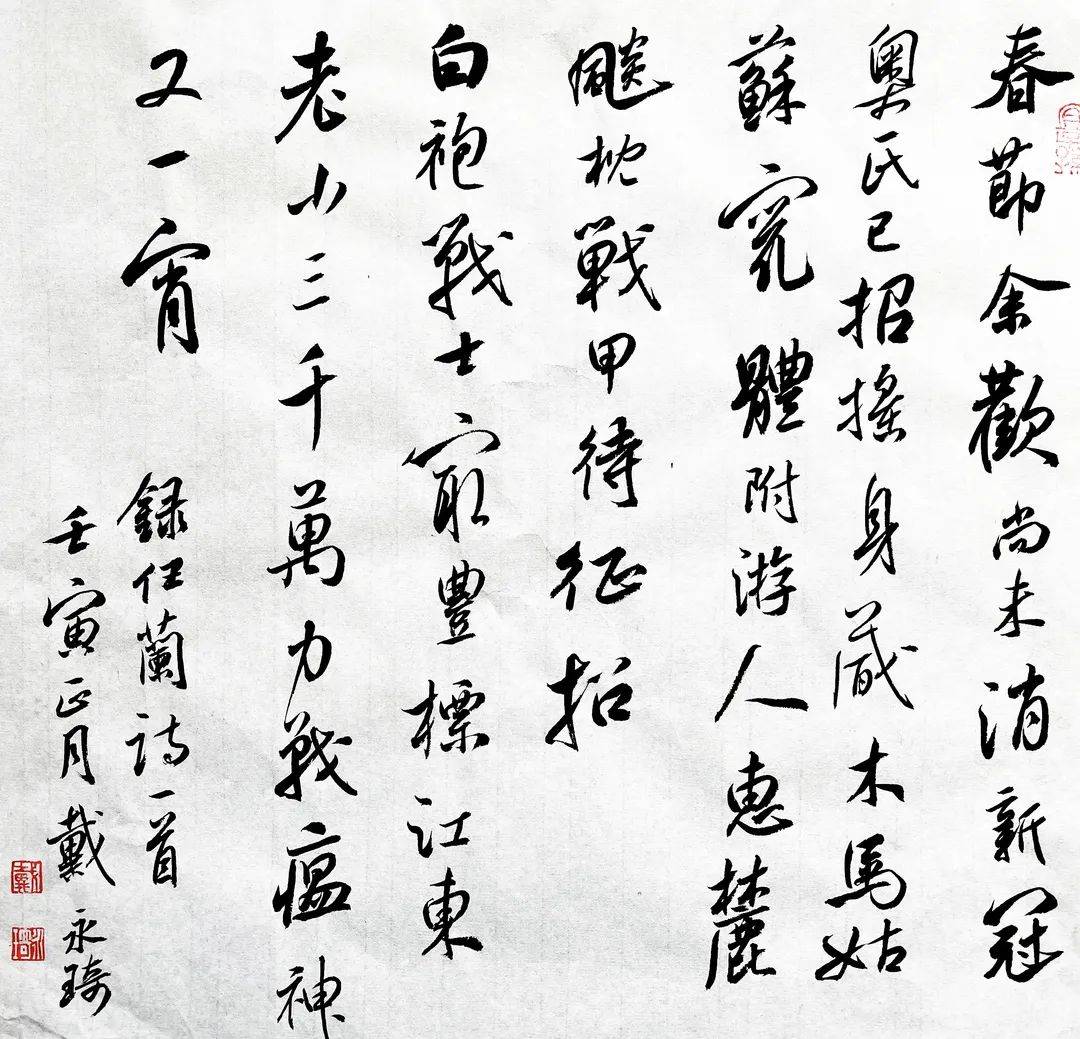 春節余歡尚未消新冠
奥氏已招摇身藏木馬姑
蘇窕體附游人惠麓
飈枕戰甲待征招
白袍戰士㝡豐標江東
老小三千萬力戰瘟神
又一宵 録任蘭詩一首
壬寅正月戴永琦